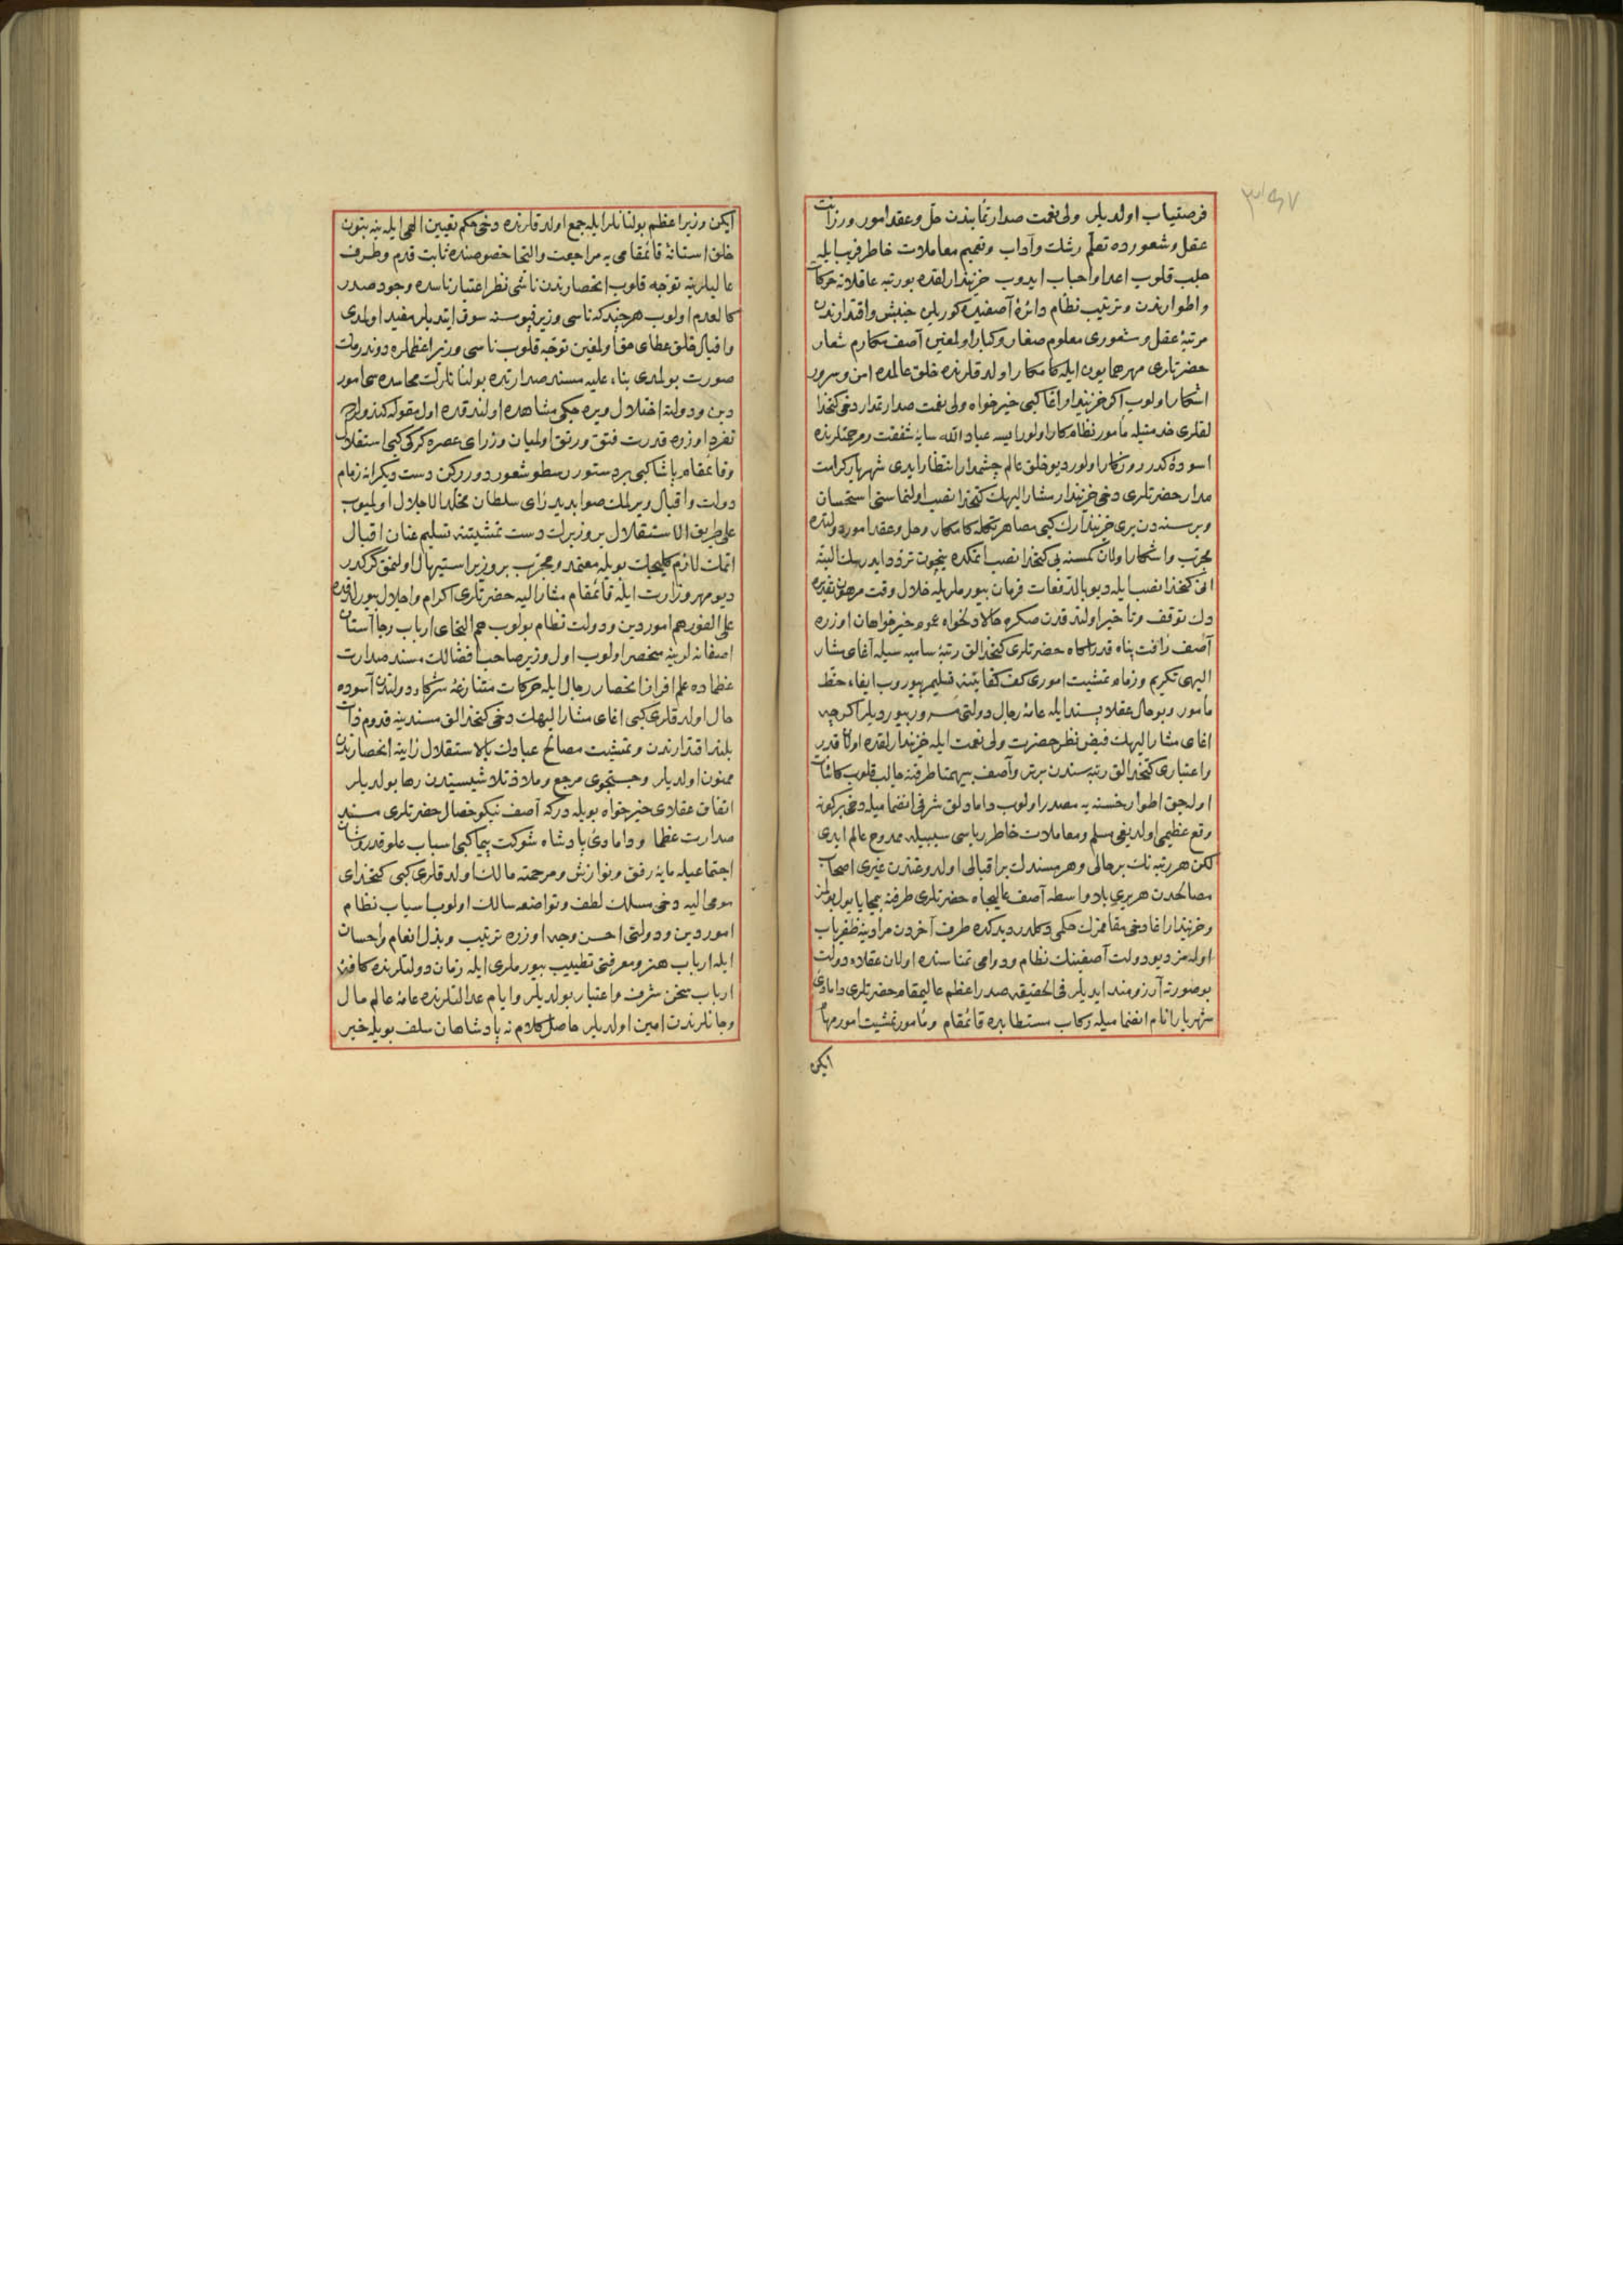 ٣٩٧
فرصتیاب اولدیلر ولی نعمت صدارتمابندن حل وعقد امور ورزانت
عقل وشعورده تعلم رشد وآداب وتمیم معاملات خاطر فریب ایله
جلب قلوب اعدا واحباب ایدوب خزینه‌دارلقده بو رتبه عاقلانه حرکات
واطوارندن وترتیب نظام دائرۀ آصفیده کوریلن جنبش واقتدارندن
مرتبۀ عقل وشعوری معلوم صغار وکبار اولمغین آصف مکارم شعار
حضرتلری مهر همایون ایله کامکار اولدقلرنده خلق عالمده امن وسرور
آشکار اولوب اکر خزینه‌دار اغا کبی خیرخواه ولی نعمت صدارتمدار دخی کتخدا
لقلری خدمتیله مأمور نظام کار اولورایسه عباد الله سایۀ شفقت ومرحمتلرنده
آسودۀ کدر روزکار اولور دیو خلق عالم چشمدار انتظار ایدی شهریار کرامت
مدار حضرتلری دخی خزینه‌دار مشار الیهک کتخدا نصب اولنماسنی استحسان
وبر سنه‌دن بری خزینه‌دارک کبی مصاهرتکله کامکار وحل وعقد امور دولتده
مجرب وآشکار اولان کمسنه‌یی کتخدا نصب ایتمکده نیچون تردد ایدرسک البته
انی کتخدا نصب ایله دیو بالدفعات فرمان بیورملریله خلال وقت مرهون تقدیره
دک توقف وتأخیر اولندقدن صکره حالا دلخواه عموم خیرخواهان اوزره
آصف رأفت پناه قدردانکاه حضرتلری کتخدالق رتبۀ سامیه سیله آغای مشار
الیهی تکریم وزمام تمشیت اموری کف کفایتنه تسلیم بیوروب ایفاء حفظ
مأمور وبو حال عقلا پسند ایله عامۀ رجال دولتی مسرور بیوردیلر اکرچه
اغای مشار الیهک فیض نظر حضرت ولی نعمت ایله خزینه‌دارلقده اولان قدر
واعتباری کتخدالق رتبه سندن برتر وآصف بیهمتا طرفنه جالب قلوب کائنات
اوله‌جق اطوار حسنه‌یه مصدر اولوب دامادلق شرفی انضمامیله دخی برکونه
وقع عظیمی اولدیغی مسلم ومعاملات خاطر رباسی سببیله ممدوح عالم ایدی
لکن هر رتبه‌نک بر حالی وهر مسندک بر اقبالی اولدوغندن غیری اصحاب
مصالحدن هر بری بلا واسطه آصف عالیجاه حضرتلری طرفنه بیمحابا یول بولمز
وخزینه‌دار اغا دخی مقاممزک حکمی دکلدر دیدکده طرف آخردن مرادینه ظفریاب
اوله‌مز دیو دولت آصفینک نظام ودوامی تمناسنده اولان عقلاء دولت
بو صورته آرزومند ایدیلر فی الحقیقه صدر اعظم عالیمقام حضرتلری دامادی
شهریار انام انضمامیله رکاب مستطابده قائمقام ومأمور تمشیت امور مهام
ایکن
ایکن وزیر اعظم بولنانلر ایله جمع اولدقلرنده دخی حکم تعیین الهی ایله ینه بتون
خلق استانۀ قائمقامی‌یه مراجعت والتجا خصوصنده ثابت قدم وطرف
عالیلرینه توجه قلوب انحصارندن ناشی نظر اعتبار ناسده وجود صدر
کالعدم اولوب هرچند که ناسی وزیر قپوسنه سوق ایتدیلر مفید اولمدی
واقبال خلق عطای حق اولمغین توجه قلوب ناسی وزیر اعظملره دوندرمک
صورت بولمدی بناء علیه مسند صدارتده بولنانلرک محاسده سی امور
دین ودولته اختلال ویره جکی مشاهده اولندقده اول مقوله کندولره
تفرد اوزره قدرت فتق ورتق اولمیان وزرای عصره کرکی کبی استقلال
وقائمقام پاشا کبی بر دستور رسطو شعور دورورکن دست دیکرانه زمام
دولت واقبال ویرلمک صوابدید رأی سلطان مخلد الاجلال اولمیوب
علی طریق الاستقلال بر وزیرک دست تمشیتنه تسلیم عنان اقبال
اتمک لازم کلیجک بویله معتمد ومجرب بر وزیر استیهال اولنمق کرکدر
دیو مهر وزارت ایله قائمقام مشار الیه حضرتلری اکرام واجلال بیورلدقده
علی الفور هم امور دین ودولت نظام بولوب هم التجای ارباب رجا آستان
آصفانه‌لرینه منحصر اولوب اول وزیر صاحب افضالک مسند صدارت
عظماده علم افراز انحصار رجال ایله حرکات متنازعۀ شرکاء دولتدن آسوده
حال اولدقلری کبی اغای مشار الیهک دخی کتخدالق مسندینه قدوم ذات
بلند اقتدارندن وتمشیت مصالح عبادک بالاستقلال رأیینه انحصارندن
ممنون اولدیلر وجستجوی مرجع وملاذ تلاشیسیندن رها بولدیلر
اتفاق عقلای خیرخواه بویله‌در که آصف نیکو خصال حضرتلری مسند
صدارت عظما ودامادئ پادشاه شوکت پیما کبی اسباب علو قدر وشان
اجتماعیله مایۀ رفق ونوازش ومرحمته مالک اولدقلری کبی کتخدای
مومی الیه دخی مسلک لطف وتواضعه سالک اولوب اسباب نظام
امور دین ودولتی احسن وجه اوزره ترتیب وبذل انعام واحسان
ایله ارباب هنر ومعرفتی تطییب بیورملری ایله زمان دولتلرنده کافۀ
ارباب سخن شرف واعتبار بولدیلر وایام عدالتلرنده عامۀ عالم مال
وجانلرندن امین اولدیلر حاصل کلام نه پادشاهان سلف بویله خیر